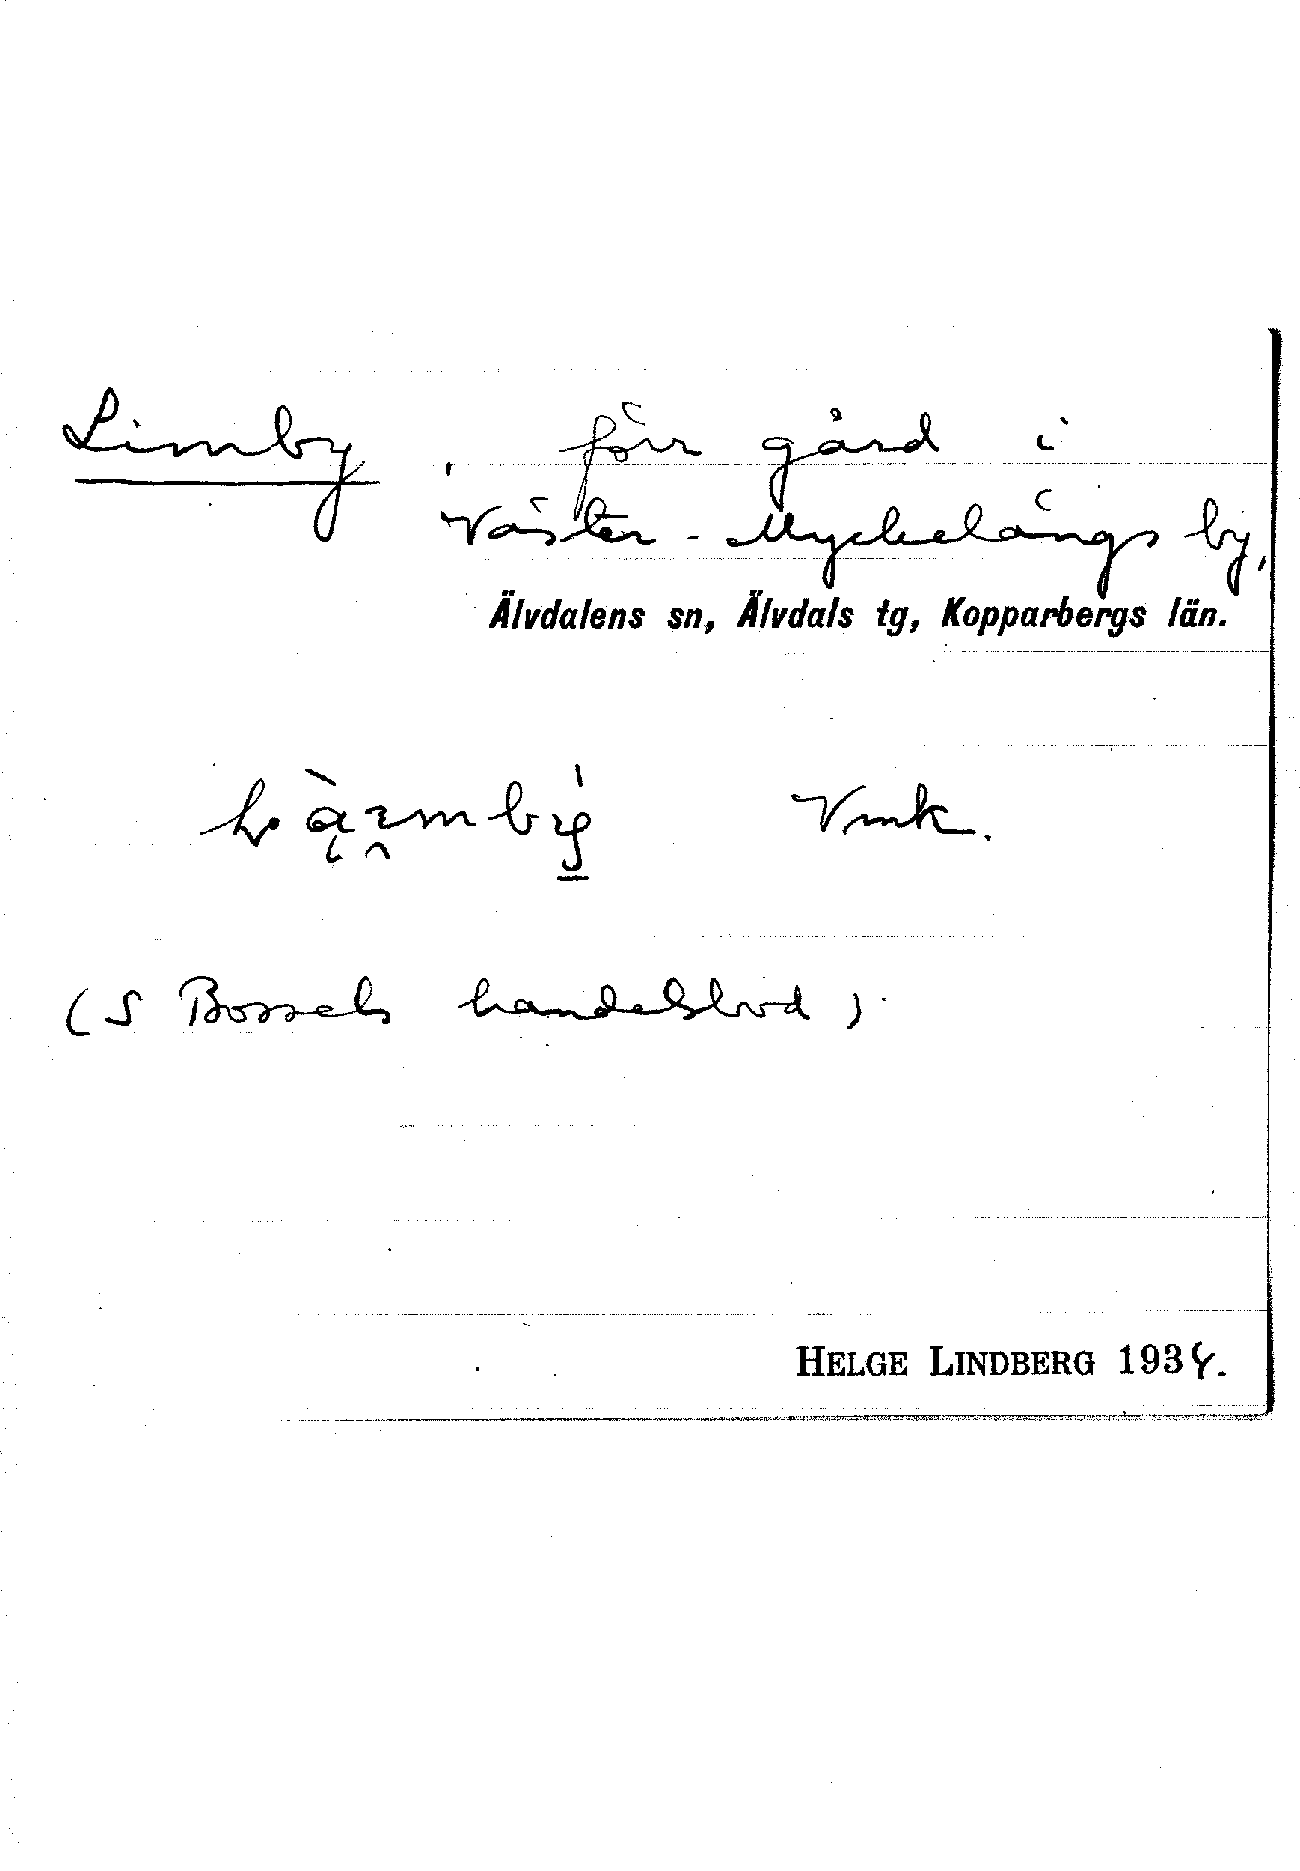 Limby, förr gård i
Väster-Myckelängs by,
Älvdalens sn, Älvdals tg, Kopparbergs län.
Vmk.
(S Bossels handelsbod)
HELGE LINDBERG 1934.